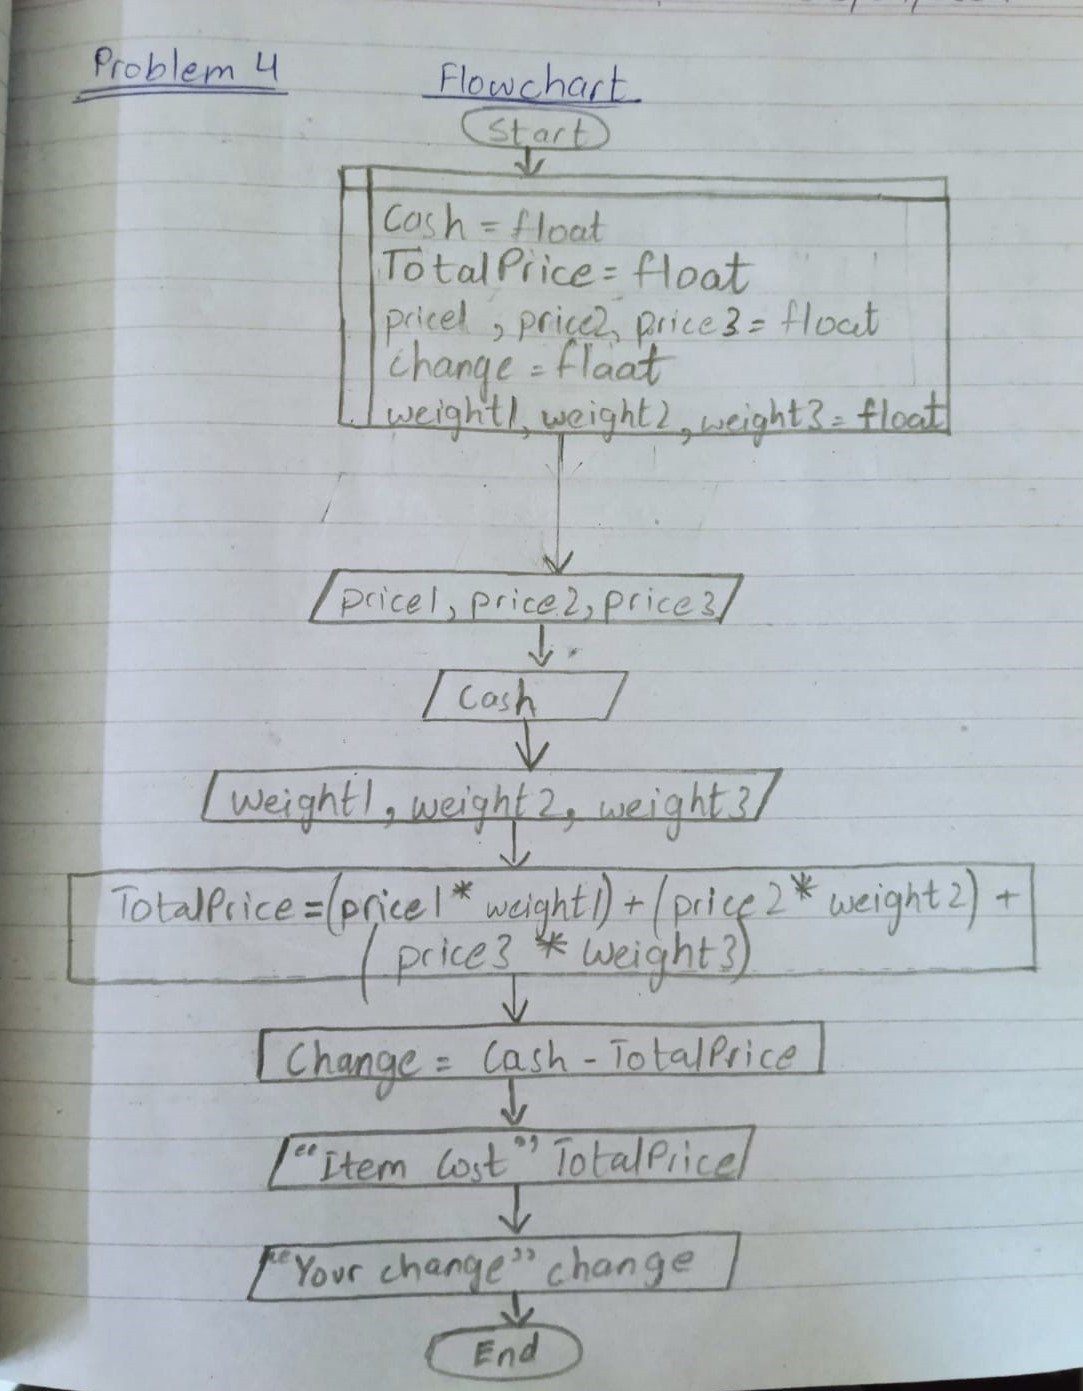 Problem 4
Flowchart
Start
Cash = float
TotalPrice = float
price1, price2, price3 = float
change = flaat
weight1, weight2, weight3 = float
price1, price2, price3
Cash
weight1, weight2, weight3
TotalPrice = (price1 * weight1) + (price2 * weight2) +
(price3 * weight3)
Change = Cash - TotalPrice
“Item Cost” TotalPrice
“Your change” change
End